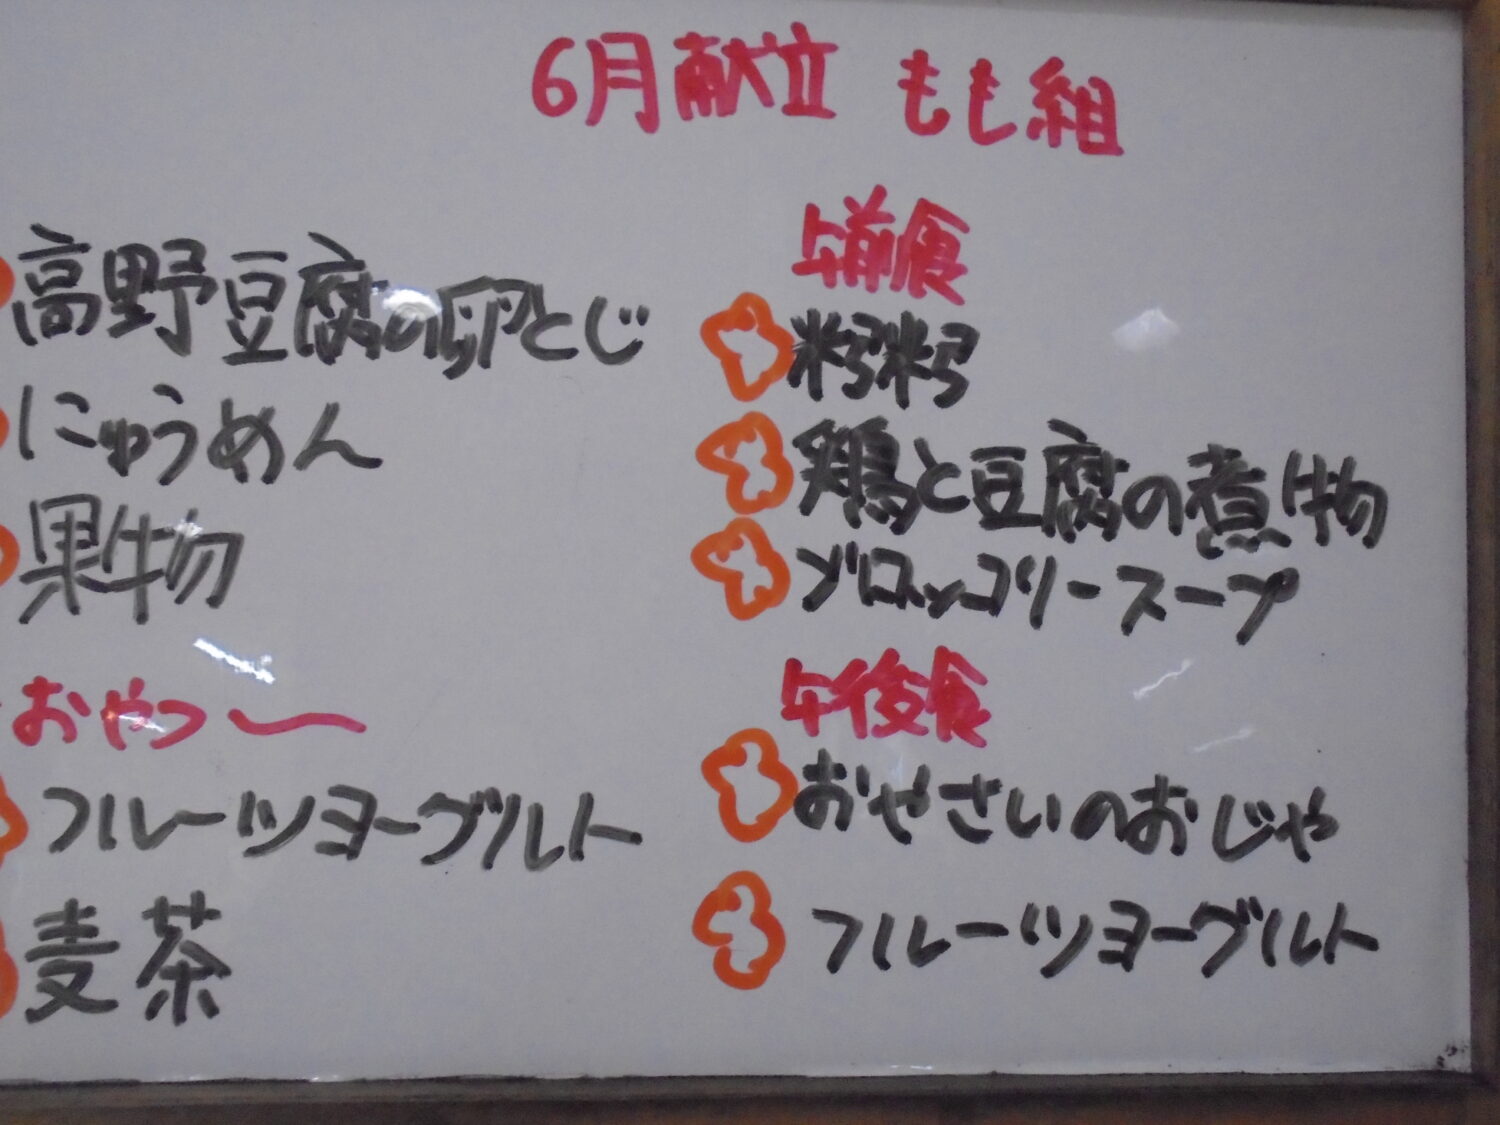 6月献立 もも組
高野豆腐の卵とじ
にゅうめん
果物
おやつ〜
フルーツヨーグルト
麦茶
午前食
鶏と豆腐の煮物
ブロッコリースープ
午後食
おやさいのおじや
フルーツヨーグルト